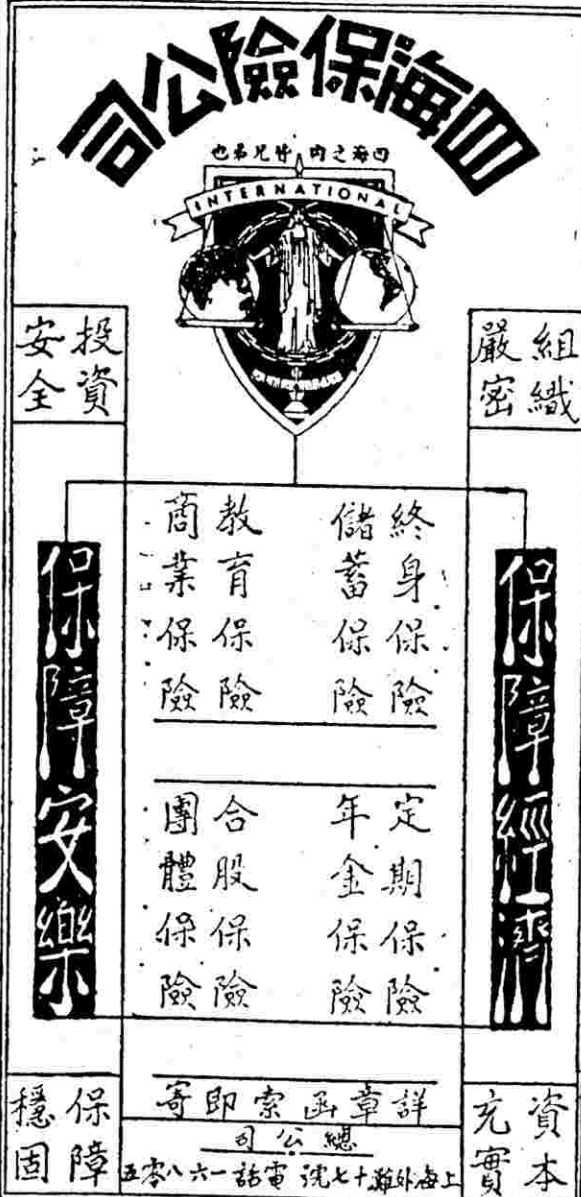 四海保險公司
四海之內皆兄弟也
INTERNATIONAL
組織
嚴密
投資
安全
保障經濟
終身保險
儲蓄保險
教育保險
商業保險
定期保險
年金保險
合股保險
團體保險
保障安樂
資本
充實
詳章函索即寄
總公司
上海外灘十七號 電話一六八零五
保障
穩固